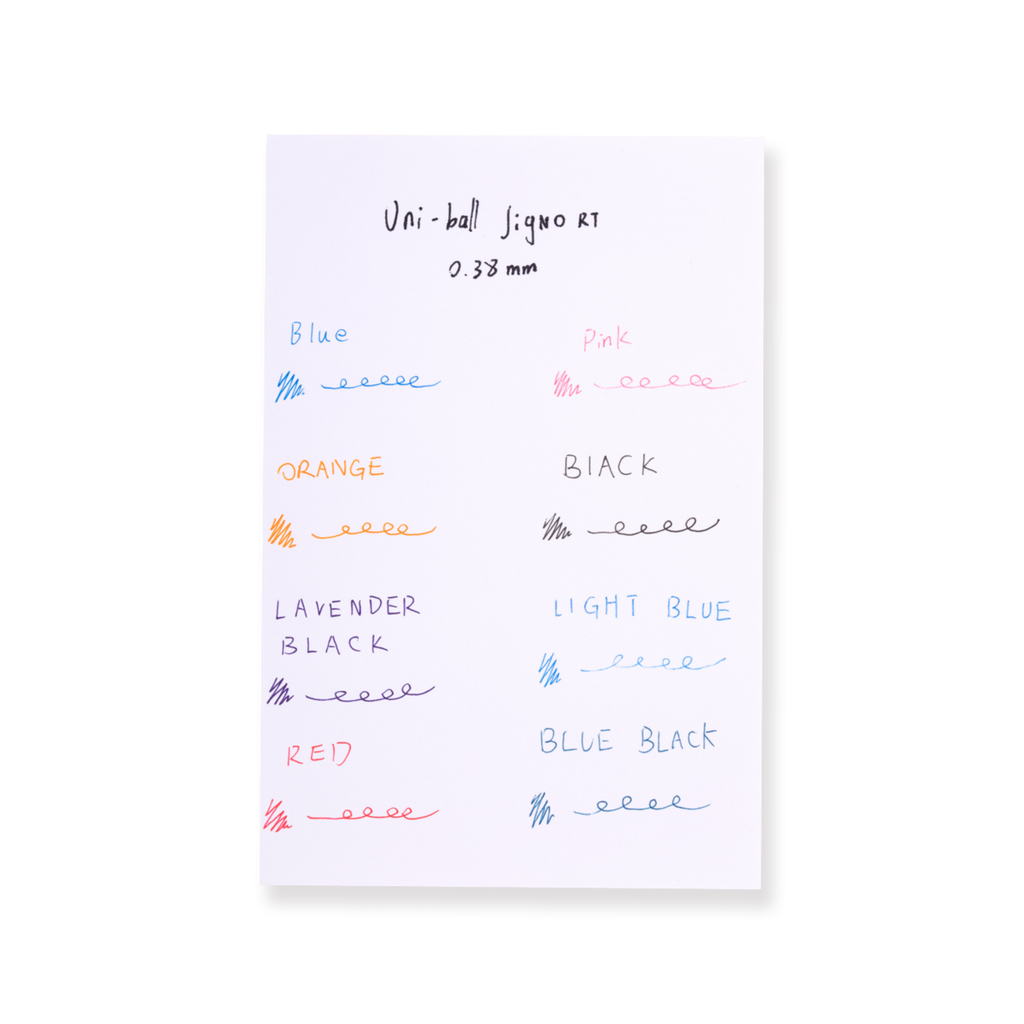 Uni-ball Signo RT
0.38 mm
Blue
Pink
ORANGE
BlACK
LAVENDER
BLACK
LIGHT BLUE
RED
BLUE BLACK